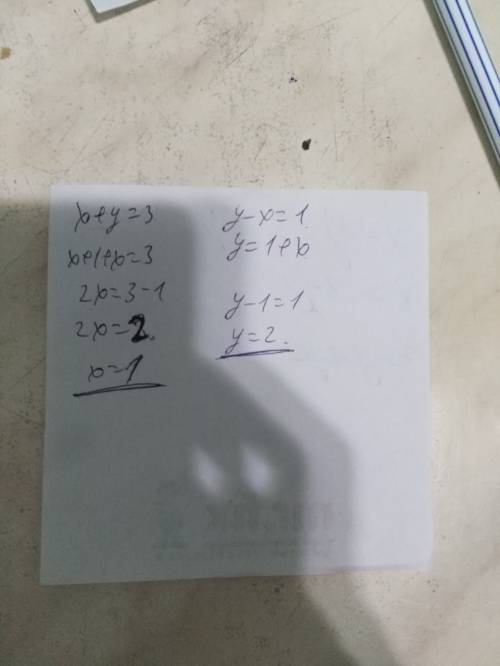 x+y=3
x+1+x=3
2x=3-1
2x=2.
x=1
y-x=1
y=1+x
y-1=1
y=2.